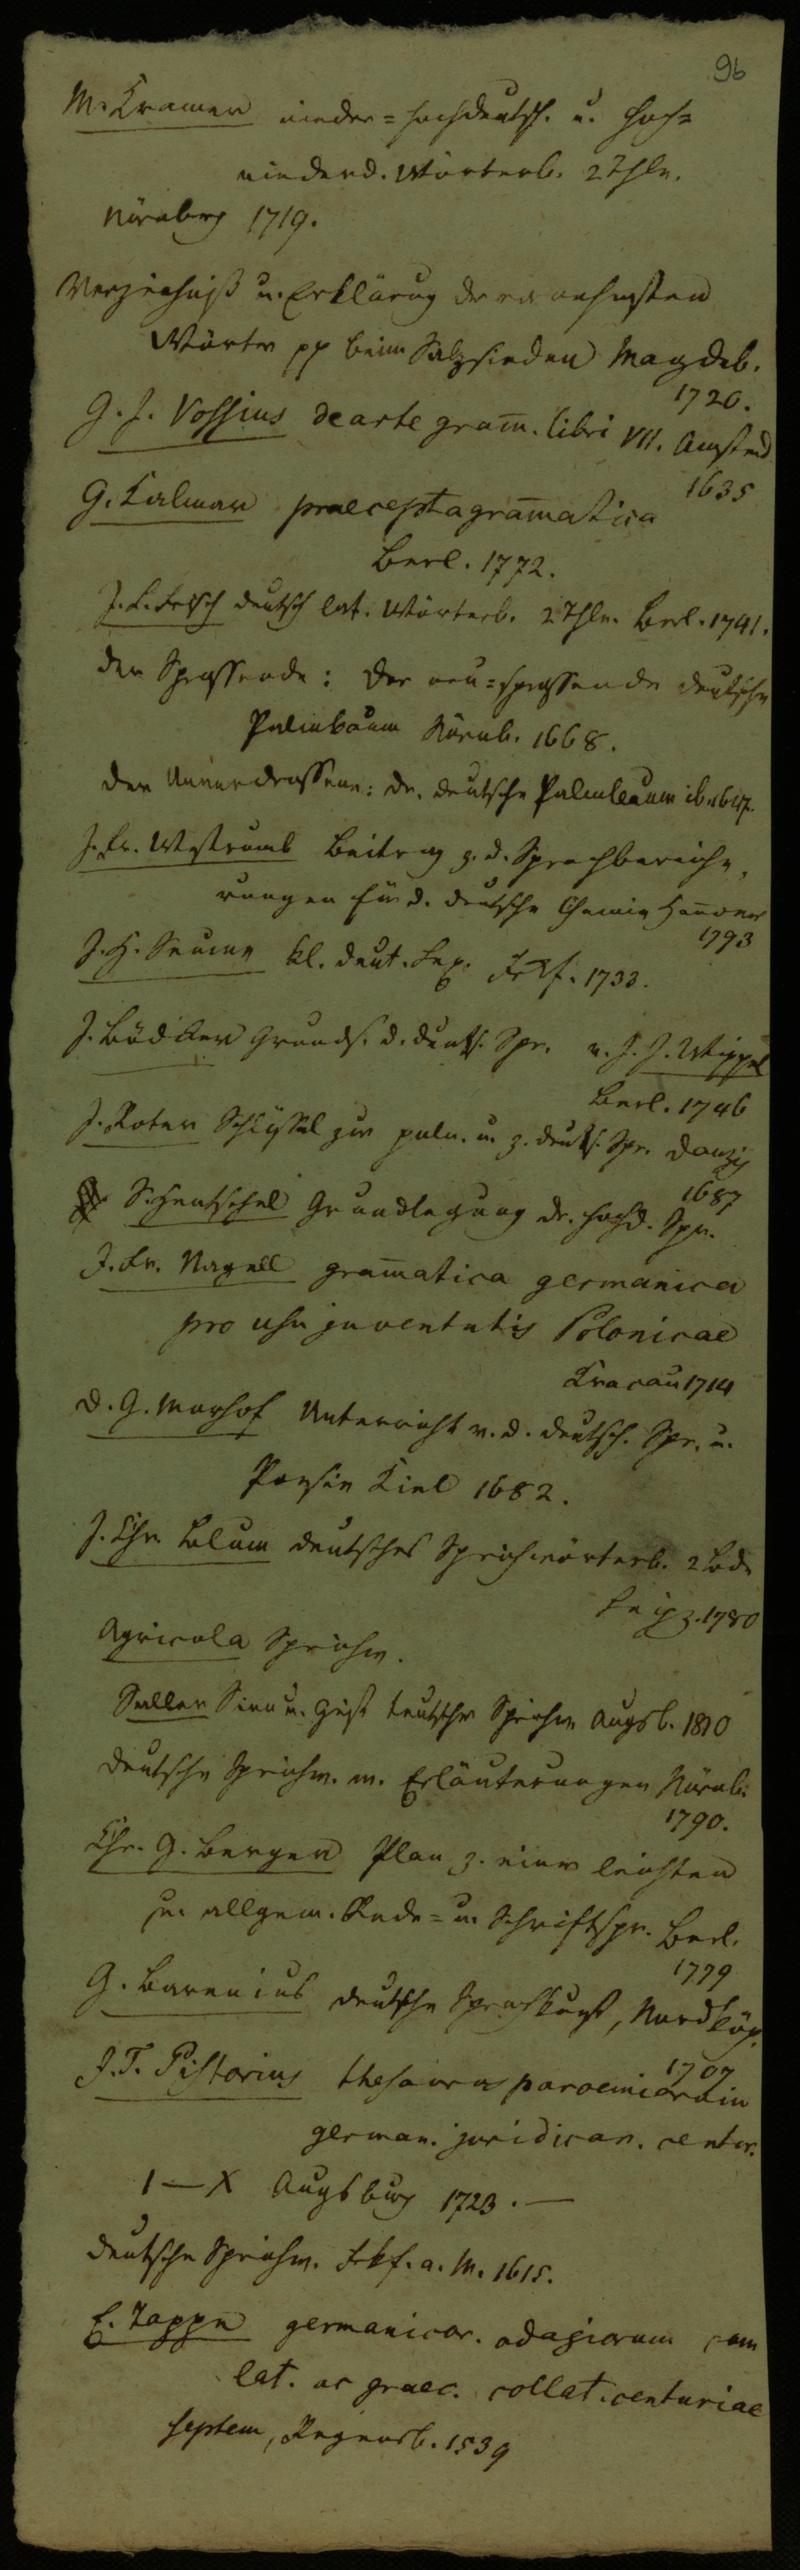 96
M. Kramer nieder=hochdeutsch. u. hoch=
niederd. Wörterb. 2 Thle.
Nürnberg 1719.
Verzeichniß u. Erklärung der vornehmsten
Wörter pp beim Salzsieden Magdeb.
1720.
G. J. Vossius de arte gram̅. libri VII. Amsterd
1635
G. Kalmar praecepta gram̅atica
Berl. 1772.
J. L. Frisch deutsch lat. Wörterb. 2 Thle. Berl. 1741.
der Sprossende: Der neu=sprossende deutsche
Palmbaum Nürnb. 1668.
der Unverdrossene: Der deutsche Palmbaum ib. 1647.
J. Fr. Westrumb Beitrag z. d. Sprachbereiche,
rungen für d. deutsche Chemie Han̅over
1793
J. H. Seume kl. deut. Lex. Frkf. 1733.
J. Bödiker Grunds. d. deuts. Spr. v. J. J. Wippel
Berl. 1746
J. Roter Schlüssel zur poln. u. z. deuts. Spr. Danzig
1687
S. Hentschel Grundlegung der hochd. Spr.
J. Fr. Nagell gram̅atica germanica
pro usu juventutis Polonicae
Kracau 1714
D. G. Morhof Unterricht v. d. deutsch. Spr. u.
Poesie Kiel 1682.
J. Chr. Blum deutsches Sprichwörterb. 2 Bde
Leipz. 1780
Agricola Sprichw.
Sailer Sinn u. Geist teutscher Sprichw Augsb. 1810
Deutsche Sprichw. m. Erläuterungen Nürnb.
1790.
Chr. G. Berger Plan z. einer leichten
u. allgem. Rede= u. Schriftspr. Berl.
1779
G. Barenius deutsche Sprachkunst, Nordköp.
1707
J. T. Pistorius thesaurus paroemiarum
german. juridicar. centur.
I — X Augsburg 1723. —
Deutsche Sprichw. Frkf. a. M. 1615.
E. Tappe germanicor. adagiorum cum
lat. ac graec. collat. centuriae
septem, Regensb. 1539